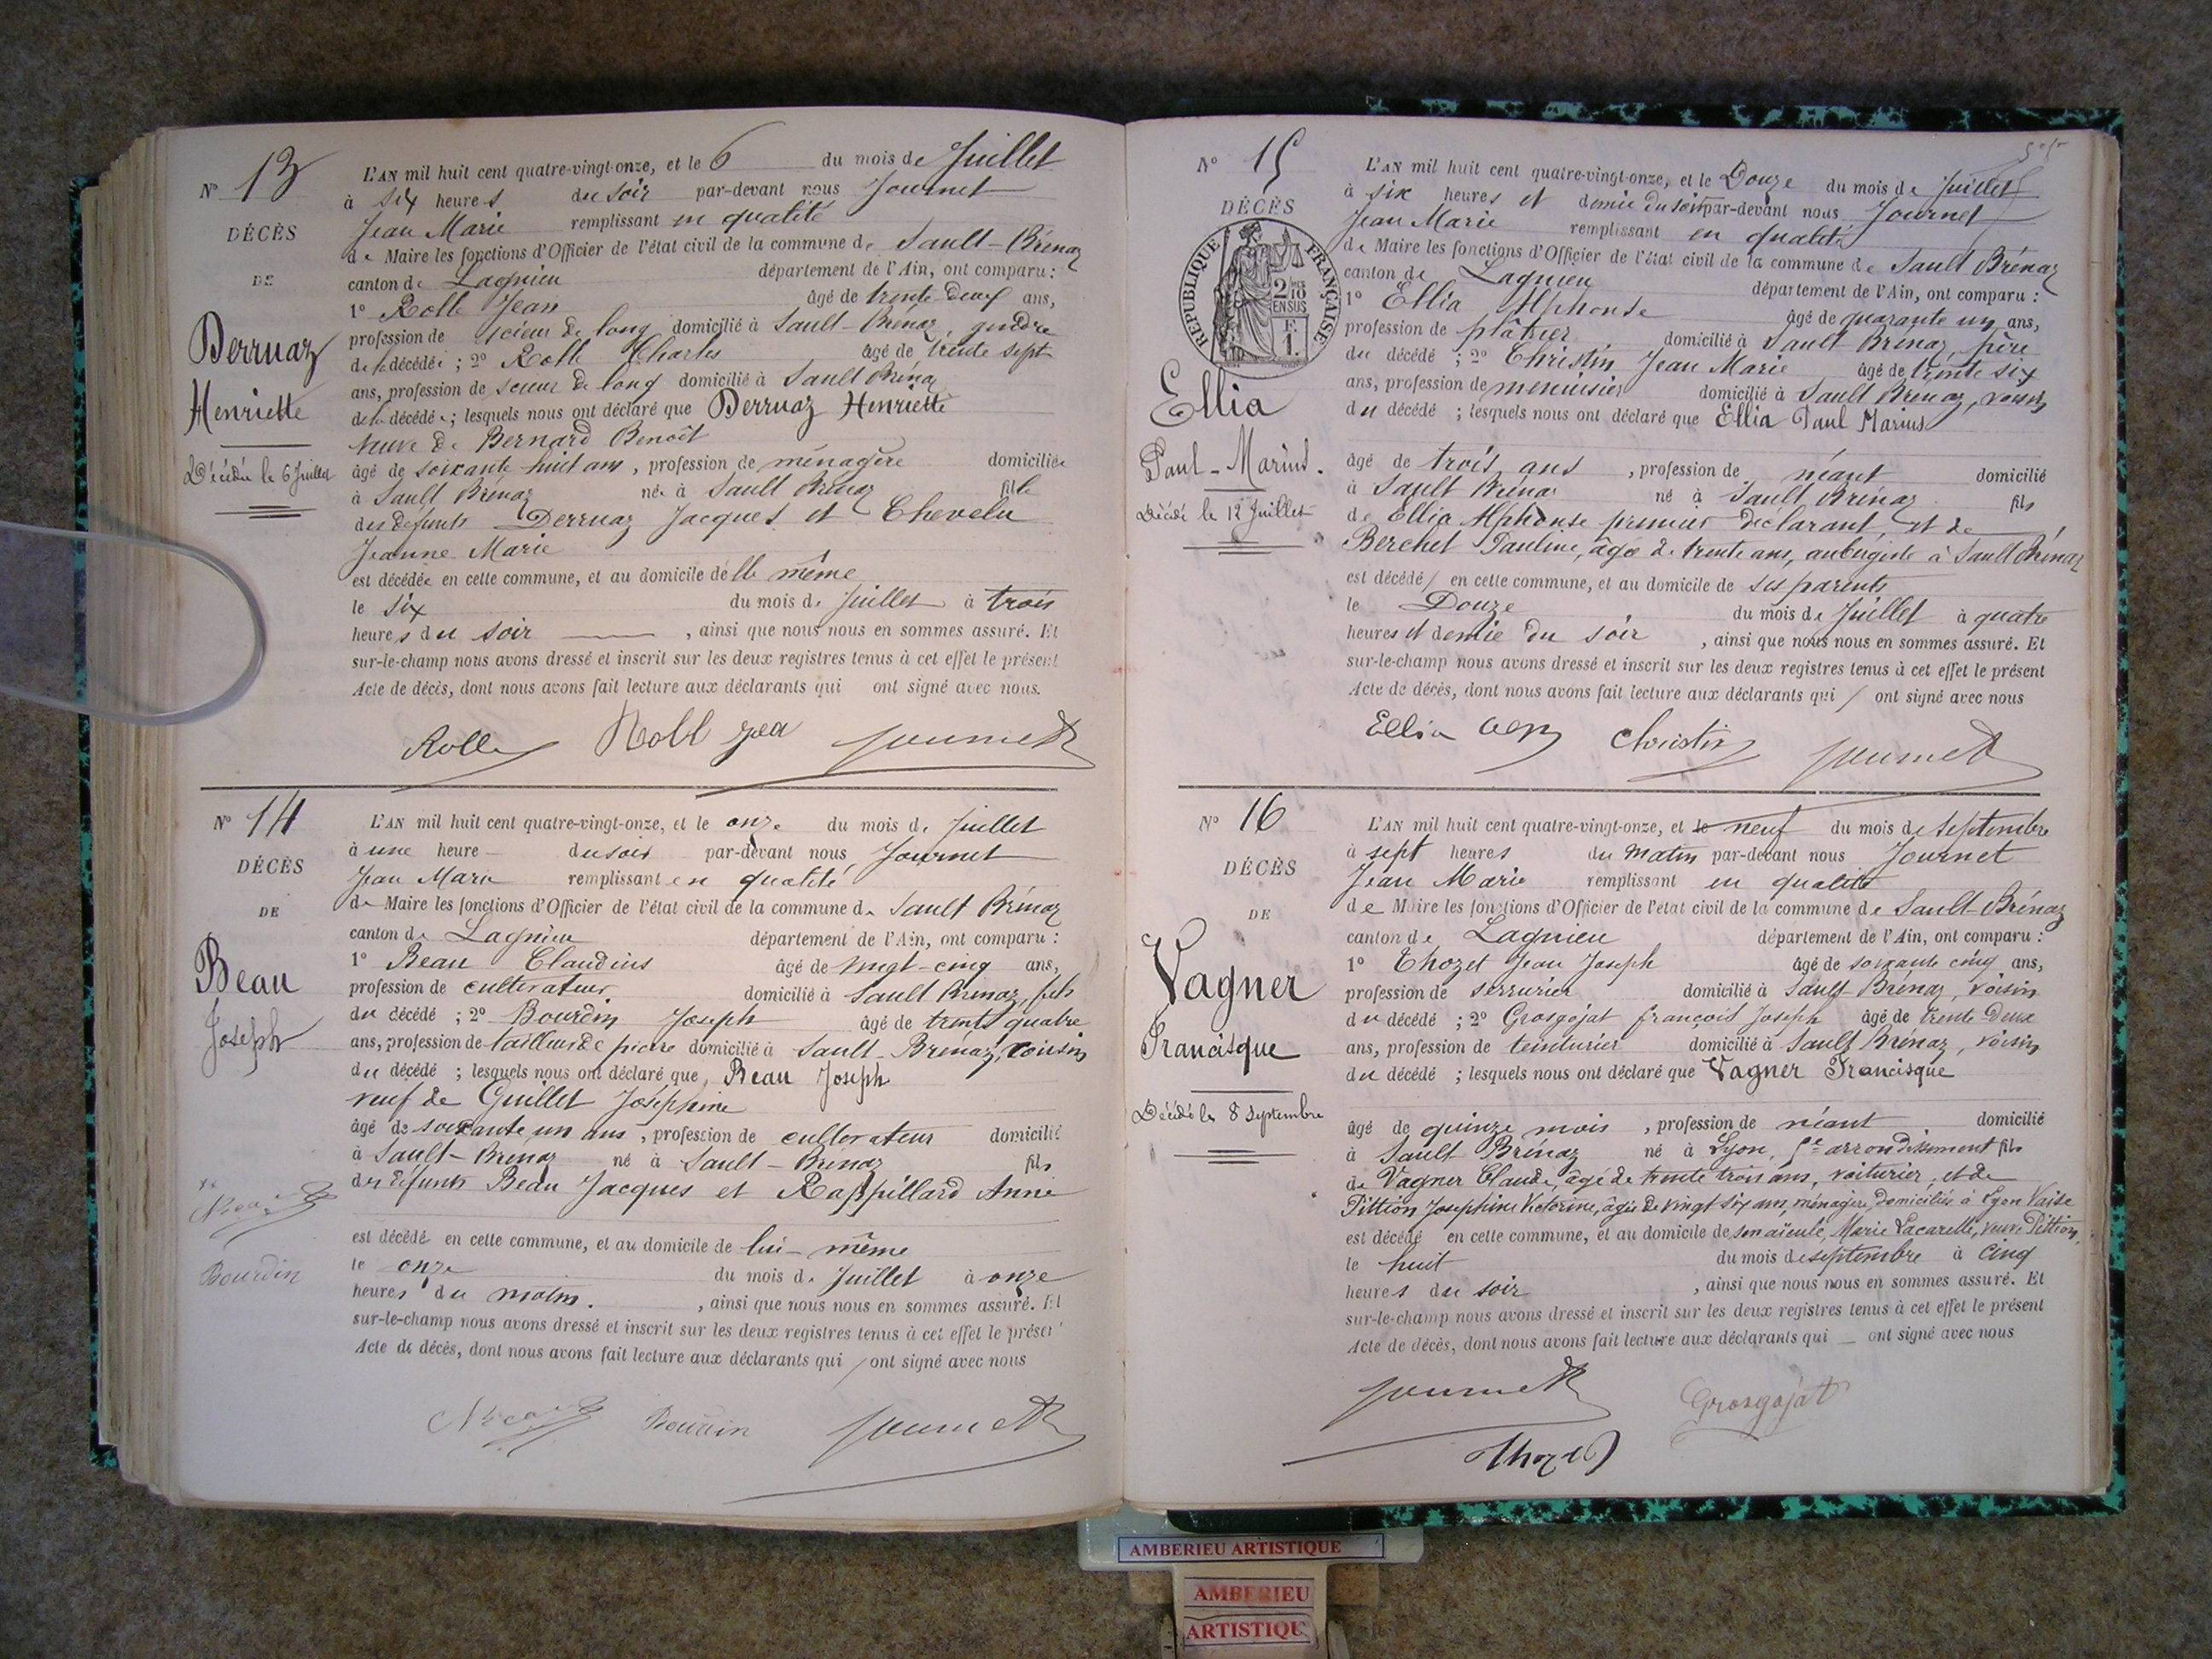 N° 13
DÉCÈS
DE
Derruaz
Henriette
Décédée le 6 Juillet
L'AN mil huit cent quatre-vingt-onze, et le 6 du mois de Juillet
à six heures du soir par-devant nous Journet
Jean Marie remplissant en qualité
de Maire les fonctions d'Officier de l'état civil de la commune de Sault-Brénaz
canton de Lagnieu département de l'Ain, ont comparu :
1° Rolle Jean âgé de trente-deux ans,
profession de scieur de long domicilié à Sault-Brénaz, gendre
de la décédée ; 2° Rolle Charles âgé de trente sept
ans, profession de scieur de long domicilié à Sault Brénaz
de la décédée ; lesquels nous ont déclaré que Derruaz Henriette
veuve de Bernard Benoît
âgé de soixante huit ans, profession de ménagère domiciliée
à Sault Brénaz née à Sault Brénaz fille
des défunts Derruaz Jacques et Chevelu
Jeanne Marie
est décédée en cette commune, et au domicile d'elle même
le six du mois de Juillet à trois
heures du soir, ainsi que nous nous en sommes assuré. Et
sur-le-champ nous avons dressé et inscrit sur les deux registres tenus à cet effet le présent
Acte de décès, dont nous avons fait lecture aux déclarants qui ont signé avec nous.
Rolle Journet
N° 14
DÉCÈS
DE
Beau
Joseph
Bourdin
L'AN mil huit cent quatre-vingt-onze, et le onze du mois de Juillet
à une heure du soir par-devant nous Journet
Jean Marie remplissant en qualité
de Maire les fonctions d'Officier de l'état civil de la commune de Sault Brénaz
canton de Lagnieu département de l'Ain, ont comparu :
1° Beau Claudius âgé de vingt-cinq ans,
profession de cultivateur domicilié à Sault Brénaz, fils
du décédé ; 2° Bourdin Joseph âgé de trente quatre
ans, profession de tailleur de pierre domicilié à Sault-Brénaz, voisin
du décédé ; lesquels nous ont déclaré que Beau Joseph
veuf de Guillet Joséphine
âgé de soixante un ans, profession de cultivateur domicilié
à Sault-Brénaz né à Sault-Brénaz fils
des défunts Beau Jacques et Rappillard Anne
est décédé en cette commune, et au domicile de lui-même
le onze du mois de Juillet à onze
heures du matin., ainsi que nous nous en sommes assuré. Et
sur-le-champ nous avons dressé et inscrit sur les deux registres tenus à cet effet le présent
Acte de décès, dont nous avons fait lecture aux déclarants qui / ont signé avec nous
Bourdin Journet
N° 15
DÉCÈS
REPUBLIQUE FRANÇAISE
2/10 EN SUS
F. 1.
Ellia
Paul-Marius.
Décédé le 12 Juillet
L'AN mil huit cent quatre-vingt-onze, et le Douze du mois de Juillet
à six heures et demie du soir par-devant nous Journet
Jean Marie remplissant en qualité
de Maire les fonctions d'Officier de l'état civil de la commune de Sault Brénaz
canton de Lagnieu département de l'Ain, ont comparu :
1° Ellia Alphonse âgé de quarante un ans,
profession de plâtrier domicilié à Sault Brénaz, père
du décédé ; 2° Christin Jean Marie âgé de trente six
ans, profession de menuisier domicilié à Sault Brénaz, voisin
du décédé ; lesquels nous ont déclaré que Ellia Paul Marius
âgé de trois ans, profession de néant domicilié
à Sault Brénaz né à Sault Brénaz fils
de Ellia Alphonse premier déclarant, et de
Berchet Pauline, âgée de trente ans, aubergiste à Sault Brénaz
est décédé / en cette commune, et au domicile de ses parents
le Douze du mois de Juillet à quatre
heures et demie du soir, ainsi que nous nous en sommes assuré. Et
sur-le-champ nous avons dressé et inscrit sur les deux registres tenus à cet effet le présent
Acte de décès, dont nous avons fait lecture aux déclarants qui / ont signé avec nous
Ellia Christin Journet
N° 16
DÉCÈS
DE
Vagner
Francisque
Décédé le 8 Septembre
L'AN mil huit cent quatre-vingt-onze, et le neuf du mois de Septembre
à sept heures du matin par-devant nous Journet
Jean Marie remplissant en qualité
de Maire les fonctions d'Officier de l'état civil de la commune de Sault-Brénaz
canton de Lagnieu département de l'Ain, ont comparu :
1° Thozet Jean Joseph âgé de soixante cinq ans,
profession de serrurier domicilié à Sault-Brénaz, voisin
du décédé ; 2° Grosgojat françois Joseph âgé de trente-deux
ans, profession de teinturier domicilié à Sault Brénaz, voisin
du décédé ; lesquels nous ont déclaré que Vagner Francisque
âgé de quinze mois, profession de néant domicilié
à Sault Brénaz né à Lyon, 5e arrondissement fils
de Vagner Claude, âgé de trente trois ans, voiturier, et de
Pittion Josephine Victorine, âgée de vingt six ans, ménagère, domiciliés à Lyon Vaise
est décédé en cette commune, et au domicile de son aïeule, Marie Vacarelli, veuve Pittion,
le huit du mois de septembre à cinq
heures du soir, ainsi que nous nous en sommes assuré. Et
sur-le-champ nous avons dressé et inscrit sur les deux registres tenus à cet effet le présent
Acte de décès, dont nous avons fait lecture aux déclarants qui — ont signé avec nous
Journet Grosgojat
Thozet
AMBERIEU ARTISTIQUE
AMBERIEU
ARTISTIQU